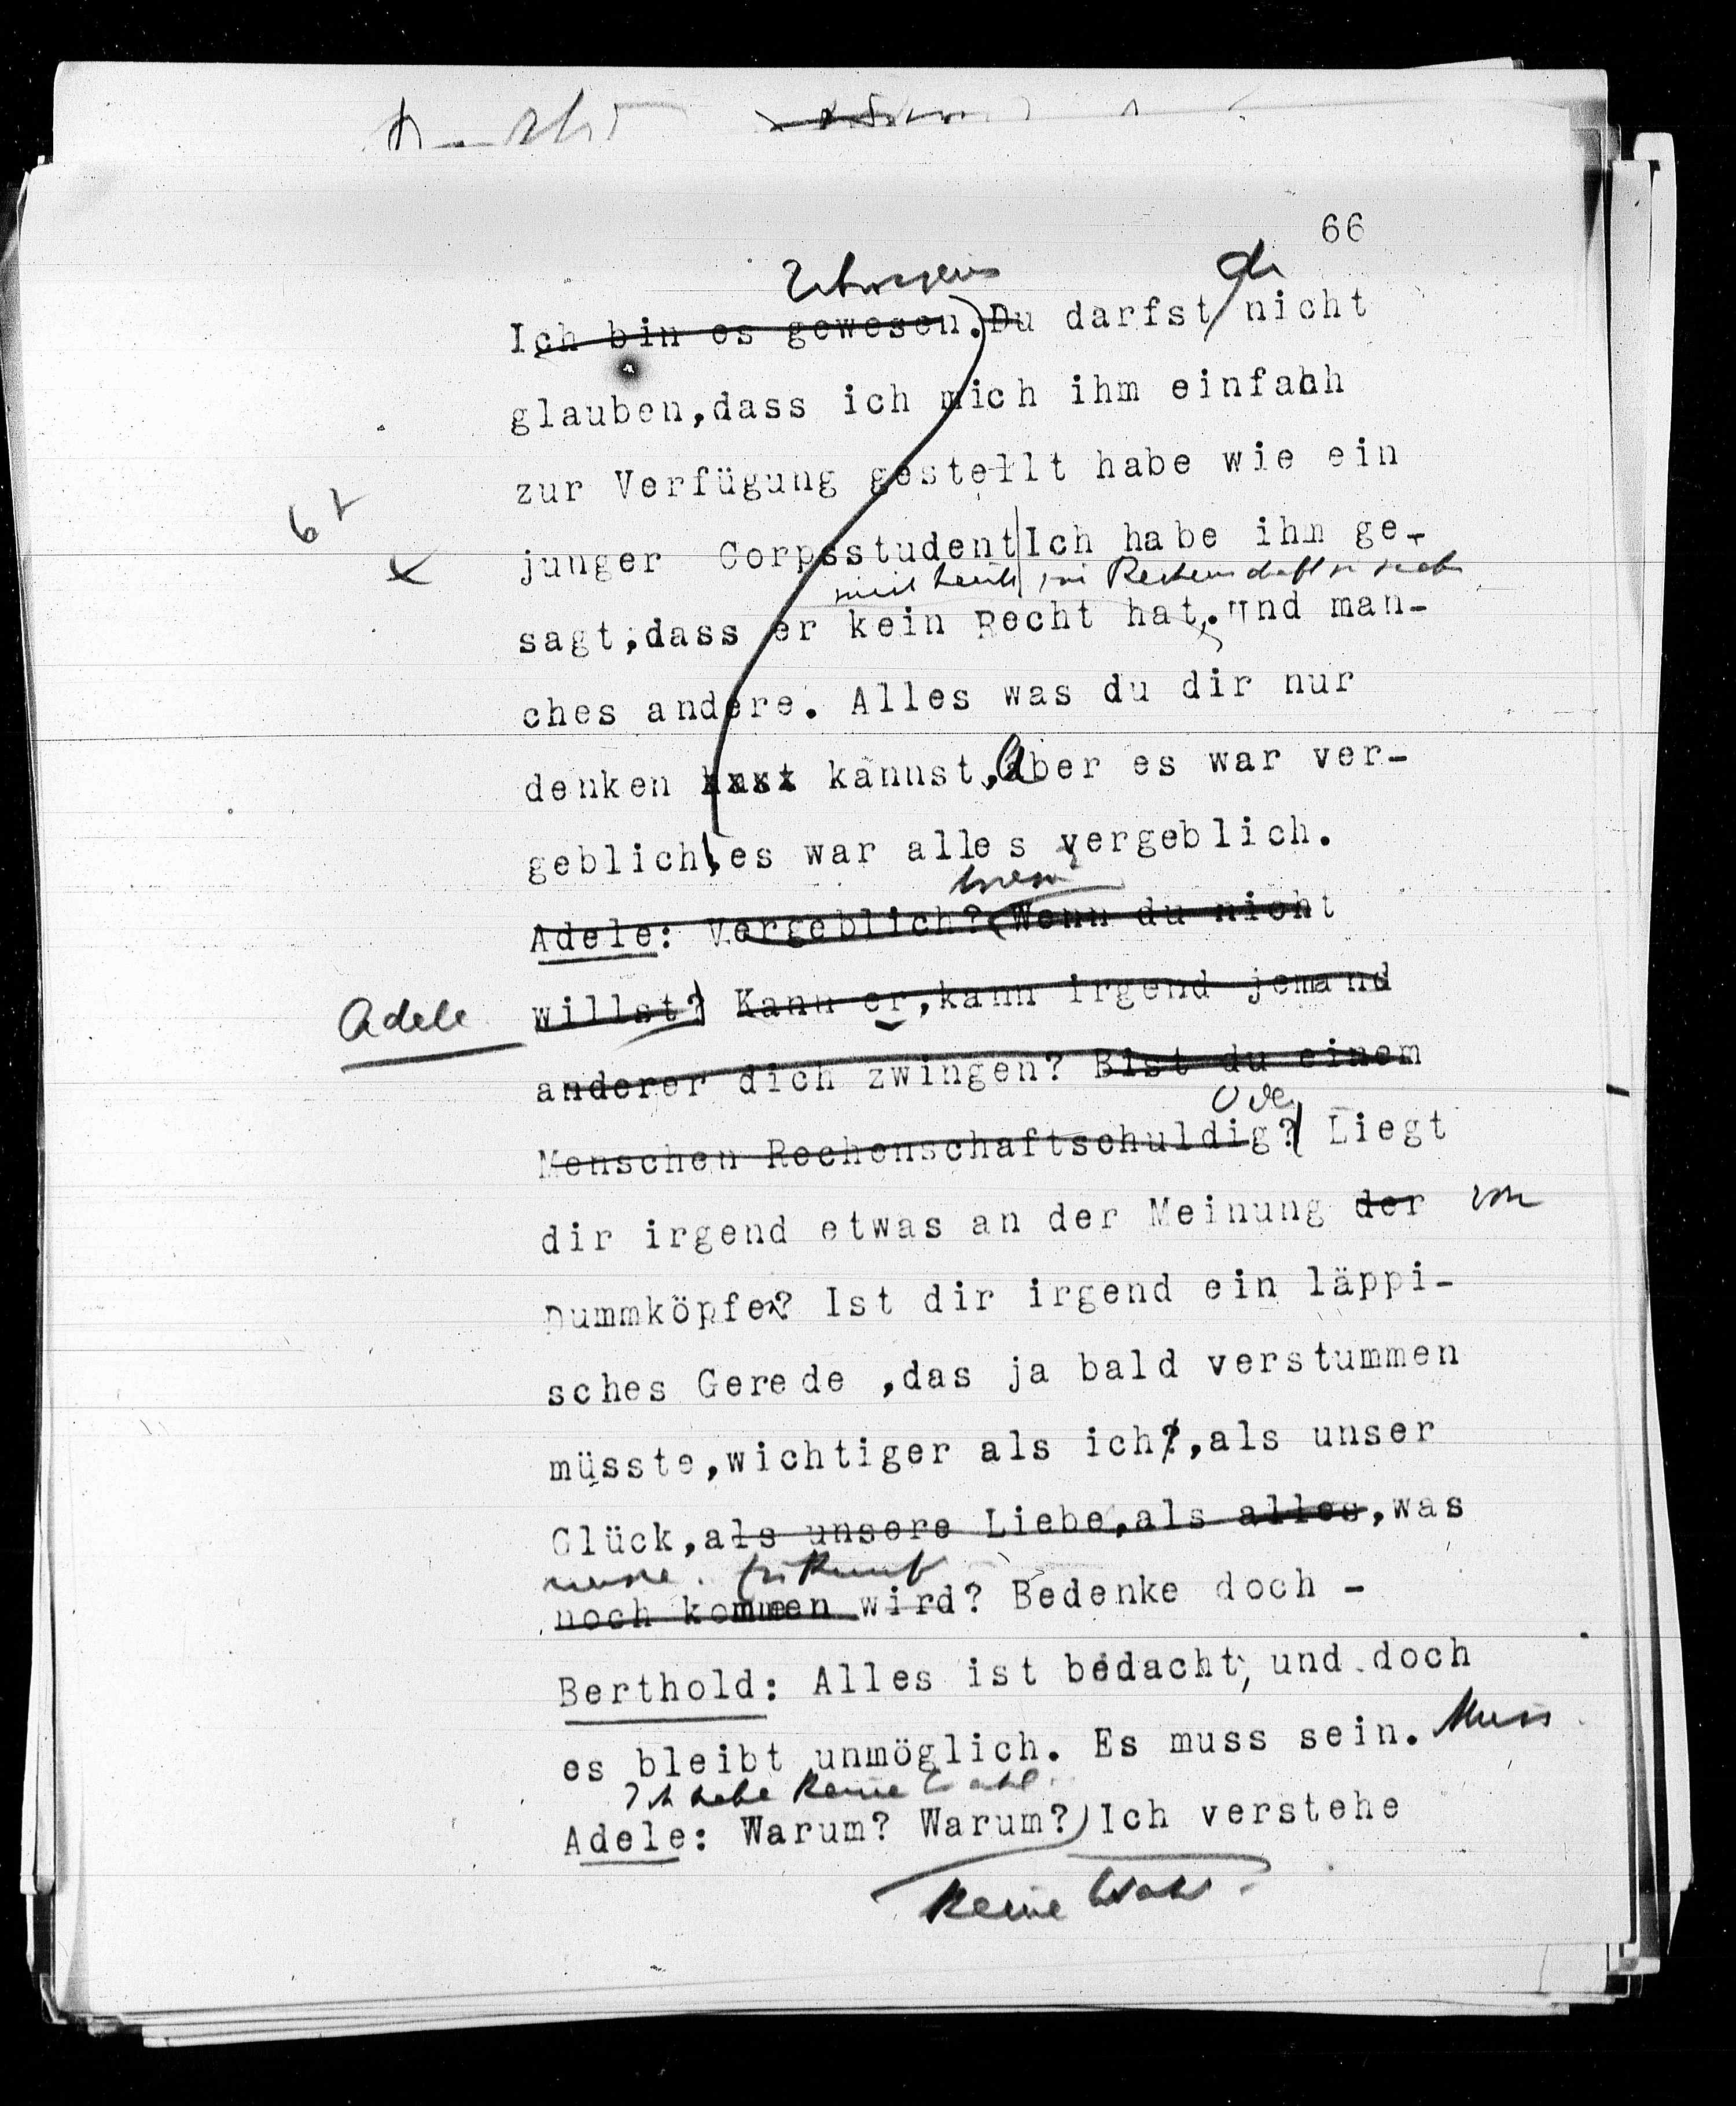 66
du
Ich bin es gewesen. Du darfst nicht
glauben,dass ich mich ihm einfach
zur Verfügung gestellt habe wie ein
junger Corpsstudent Ich habe ihn ge-
zur Rechenschaft zu
sagt,dass er kein Recht hat, und man-
ches andere. Alles was du dir nur
denken kannst, Aber es war ver-
geblich, es war alles vergeblich.
Adele: Vergeblich? Wenn du nicht
Adele willst? Kann er,kann irgend jemand
anderer dich zwingen? Bist du einem
Oder
Menschen Rechenschaftschuldig? Liegt
dir irgend etwas an der Meinung der von
Dummköpfen? Ist dir irgend ein läppi-
sches Gerede ,das ja bald verstummen
müsste,wichtiger als ich?,als unser
Glück,als unsere Liebe,als alles,was
unsere Zukunft
noch kommen wird? Bedenke doch -
Berthold: Alles ist bedacht, und doch
es bleibt unmöglich. Es muss sein. Muss
Ich habe keine Wahl.
Adele: Warum? Warum? Ich verstehe
Keine Wahl?